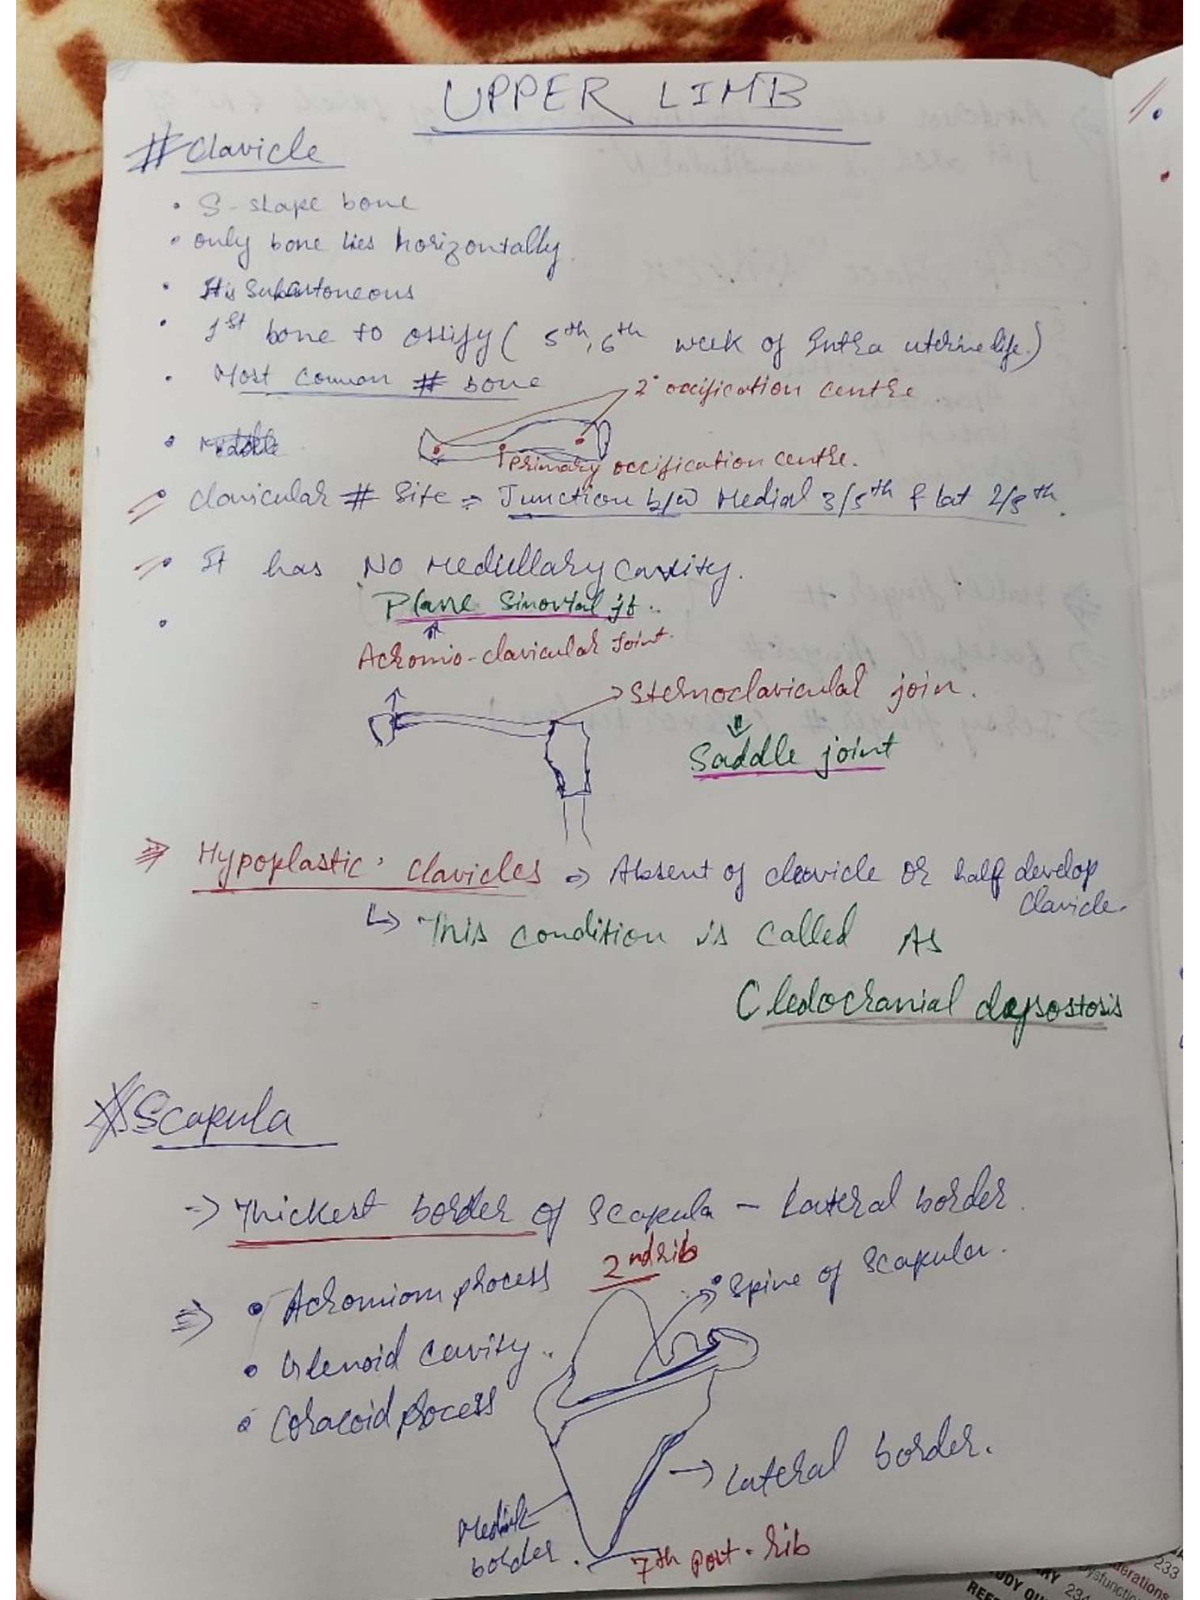 UPPER LIMB
# Clavicle
• S-shape bone
• only bone lies horizontally.
• It is Subcutoneous
• 1st bone to ossify ( 5th, 6th week of Intra uterine life.)
• Most Common # bone
2° occification centre
• Middle
1° primary occification centre.
• Clavicular # Site = Junction b/w Medial 3/5th & lat 2/3th.
• It has No Medullary Cavity.
Plane Sinovial jt..
•
Acromio-clavicular Joint.
Sternoclavicular join.
Saddle joint
Hypoplastic clavicles => Absent of clavicle or half develop
clavicle.
↳ This condition is called As
Cledocranial dysostosis
# Scapula
-> Thickest border of Scapula - Lateral border.
2nd rib
=> • Acromiom process
Spine of Scapular.
• Glenoid cavity..
• Coracoid process
-> Lateral border.
border.
7th Port. rib
233
234